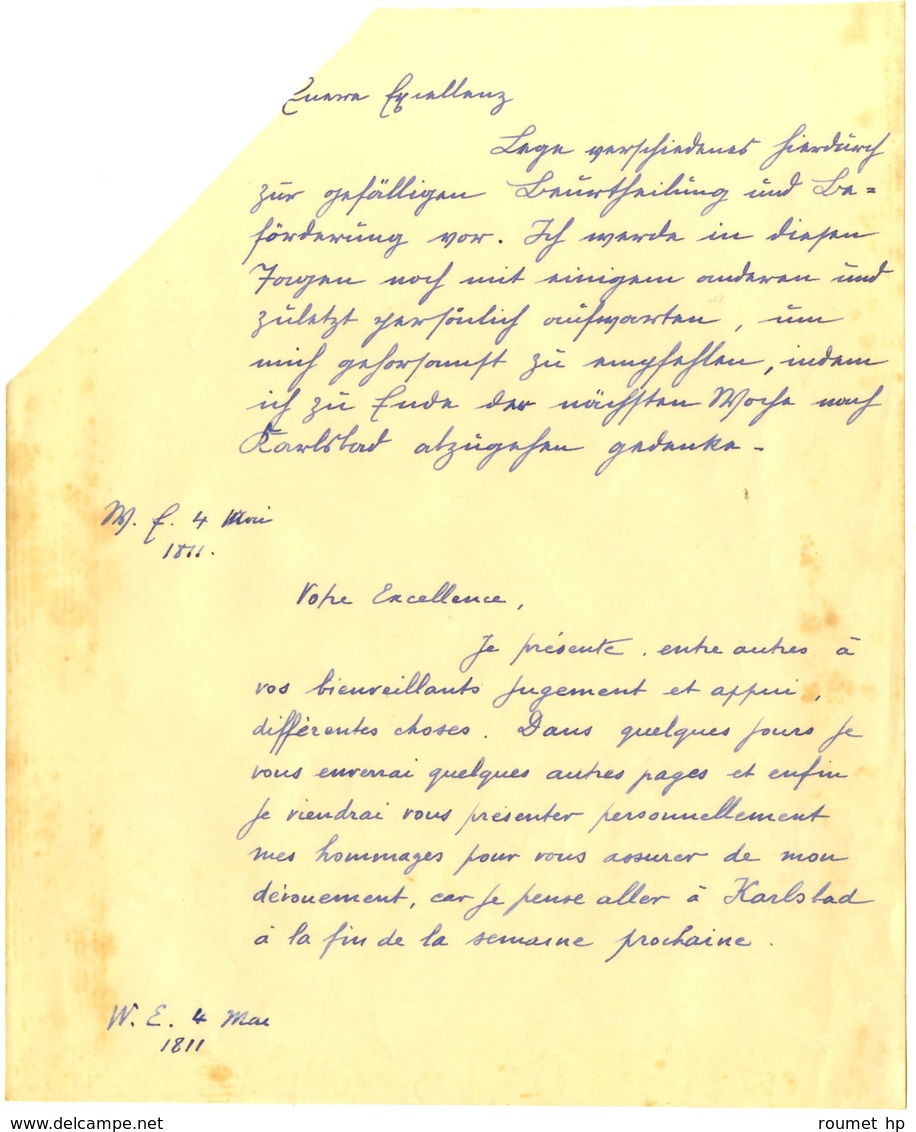 Euere Excellenz
Lege verschiedenes hierdurch
zur gefälligen Beurtheilung und Be=
förderung vor. Ich werde in diesen
Tagen noch mit einigem anderen und
zuletzt persönlich aufwarten, um
mich gehorsamst zu empfehlen, indem
ich zu Ende der nächsten Woche nach
Karlsbad abzugehen gedenke -
W. E. 4 Mai
1811.
Votre Excellence,
Je présente entre autres à
vos bienveillants jugement et appui,
différentes choses. Dans quelques jours je
vous enverrai quelques autres pages et enfin
je viendrai vous présenter personnellement
mes hommages pour vous assurer de mon
dévouement, car je pense aller à Karlsbad
à la fin de la semaine prochaine.
W. E. 4 Mai
1811
www.delcampe.net
roumet hp